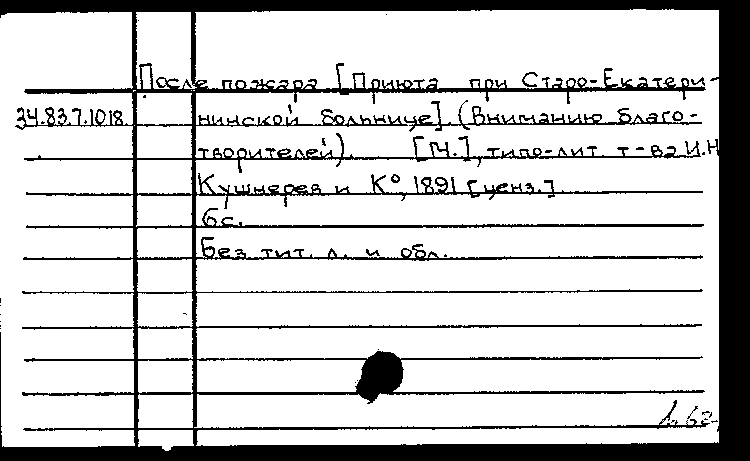 После пожара [Приюта при Старо-Екатери-
34.83.7.1018. нинской больнице]. (Вниманию благо-
творителей). [М.], типо-лит. т-ва И.Н.
Кушнерев и К°, 1891 [ценз.].
6с.
Без тит. л. и обл.